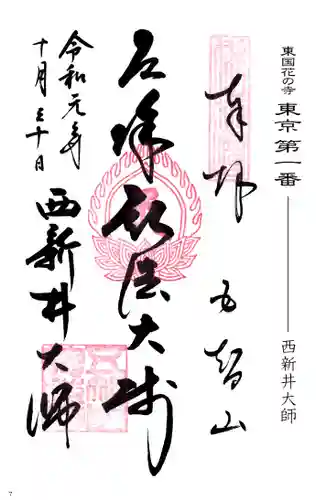 東国花の寺 東京 第一番 西新井大師
奉拝 五智山
弘法大師
西新井大師
令和元年
十月三十日
7